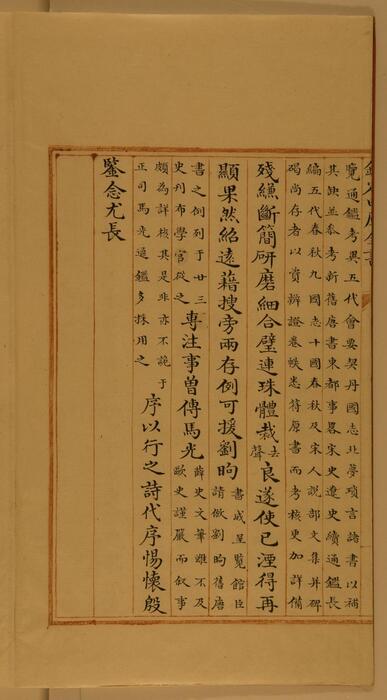 覽通鑑考異五代會要契丹國志北夢瑣言諸書以補
其缺並參考新舊唐書東都事畧宋史遼史續通鑑長
編五代春秋九國志十國春秋及宋人說部文集并碑
碣尚存者以資辨證卷帙悉符原書而考核更加詳備
殘縑斷簡研磨細合璧連珠體裁去聲良遂使已湮得再
顯果然紹遠藉搜旁兩存例可援劉昫書成呈覽館臣請倣劉昫舊唐
書之例列于廿三史刋布學官從之專注事曾傳馬光薛史文筆雖不及歐史謹嚴而敘事
頗為詳核其是非亦不詭于正司馬光通鑑多採用之序以行之詩代序惕懷殷
鑒念尤長